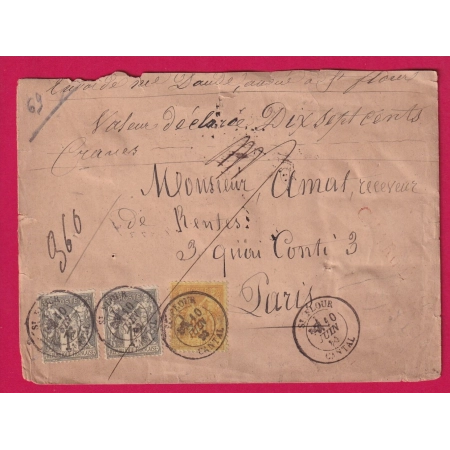 69
Envoi de me Daude, avoué à St flour
Valeur déclarée Dix sept cents
francs
360
Monsieur Amat, receveur
de Rentes
3 quai Conti 3
Paris
ST FLOUR
10
JUIN
CANTAL